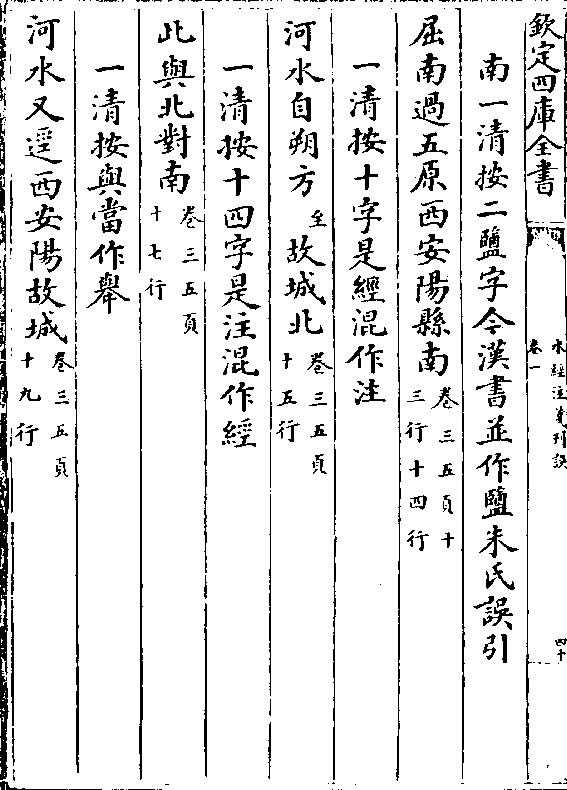 欽定四庫全書
水經注箋刊誤
卷一
四十
南一清按二鹽字今漢書並作鹽朱氏誤引
屈南過五原西安陽縣南卷三五頁十三行十四行
一清按十字是經混作注
河水自朔方至故城北卷三五頁十五行
一清按十四字是注混作經
此與北對南卷三五頁十七行
一清按與當作舉
河水又逕西安陽故城卷三五頁十九行